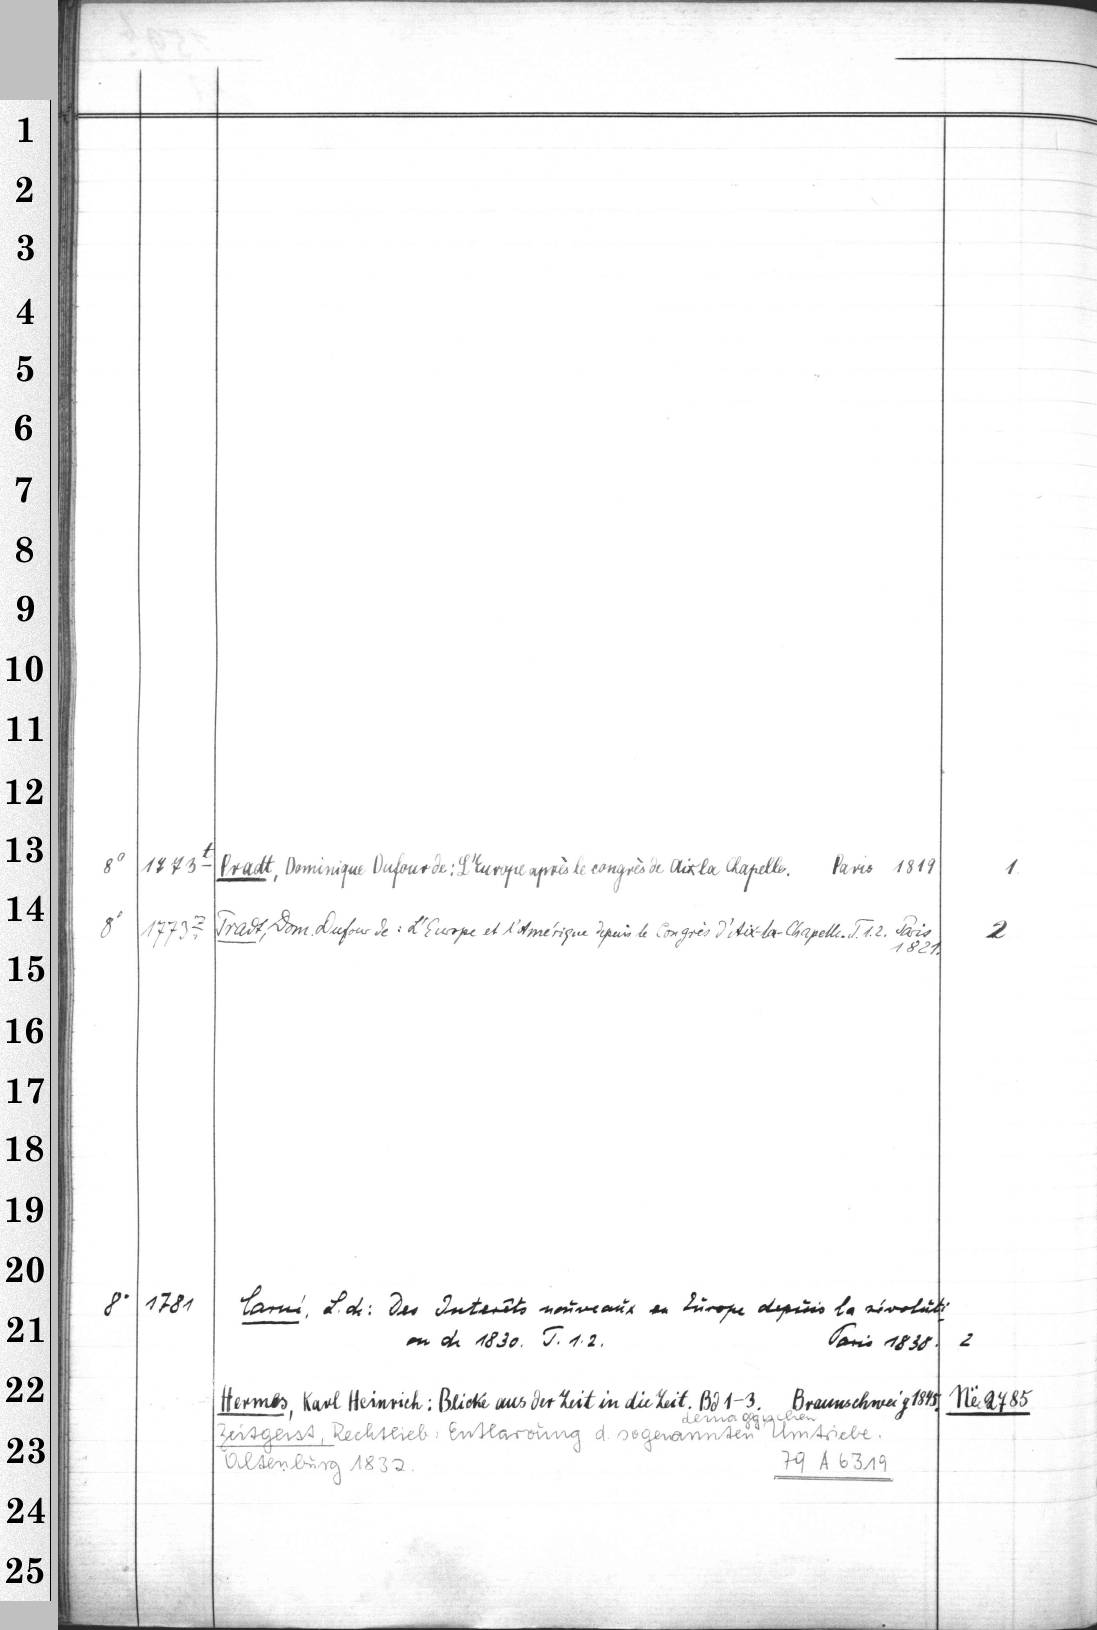 1
2
3
4
5
6
7
8
9
10
11
12
13
14
15
16
17
18
19
20
21
22
23
24
25
8° 1773 t Pradt, Dominique Dufour de: L'Europe après le congrès de Aix la Chapelle. Paris 1819 1
8° 1773 z Pradt, Dom. Dufour de: L'Europe et l'Amérique depuis le Congrès d'Aix-la-Chapelle. T. 1.2. Paris 1821. 2
8° 1781 Carné, L. de: Des Interêts nouveaux en Europe depuis la révoluti
on de 1830. T. 1.2. Paris 1838. 2
Hermes, Karl Heinrich: Blicke aus der Zeit in die Zeit. Bd 1-3. Braunschweig 1845. Në. 2785
Zeitgeist, Rechtlieb: Entlarvung d. sogenannten demagogischen Umtriebe.
Altenburg 1832. 79 A 6319